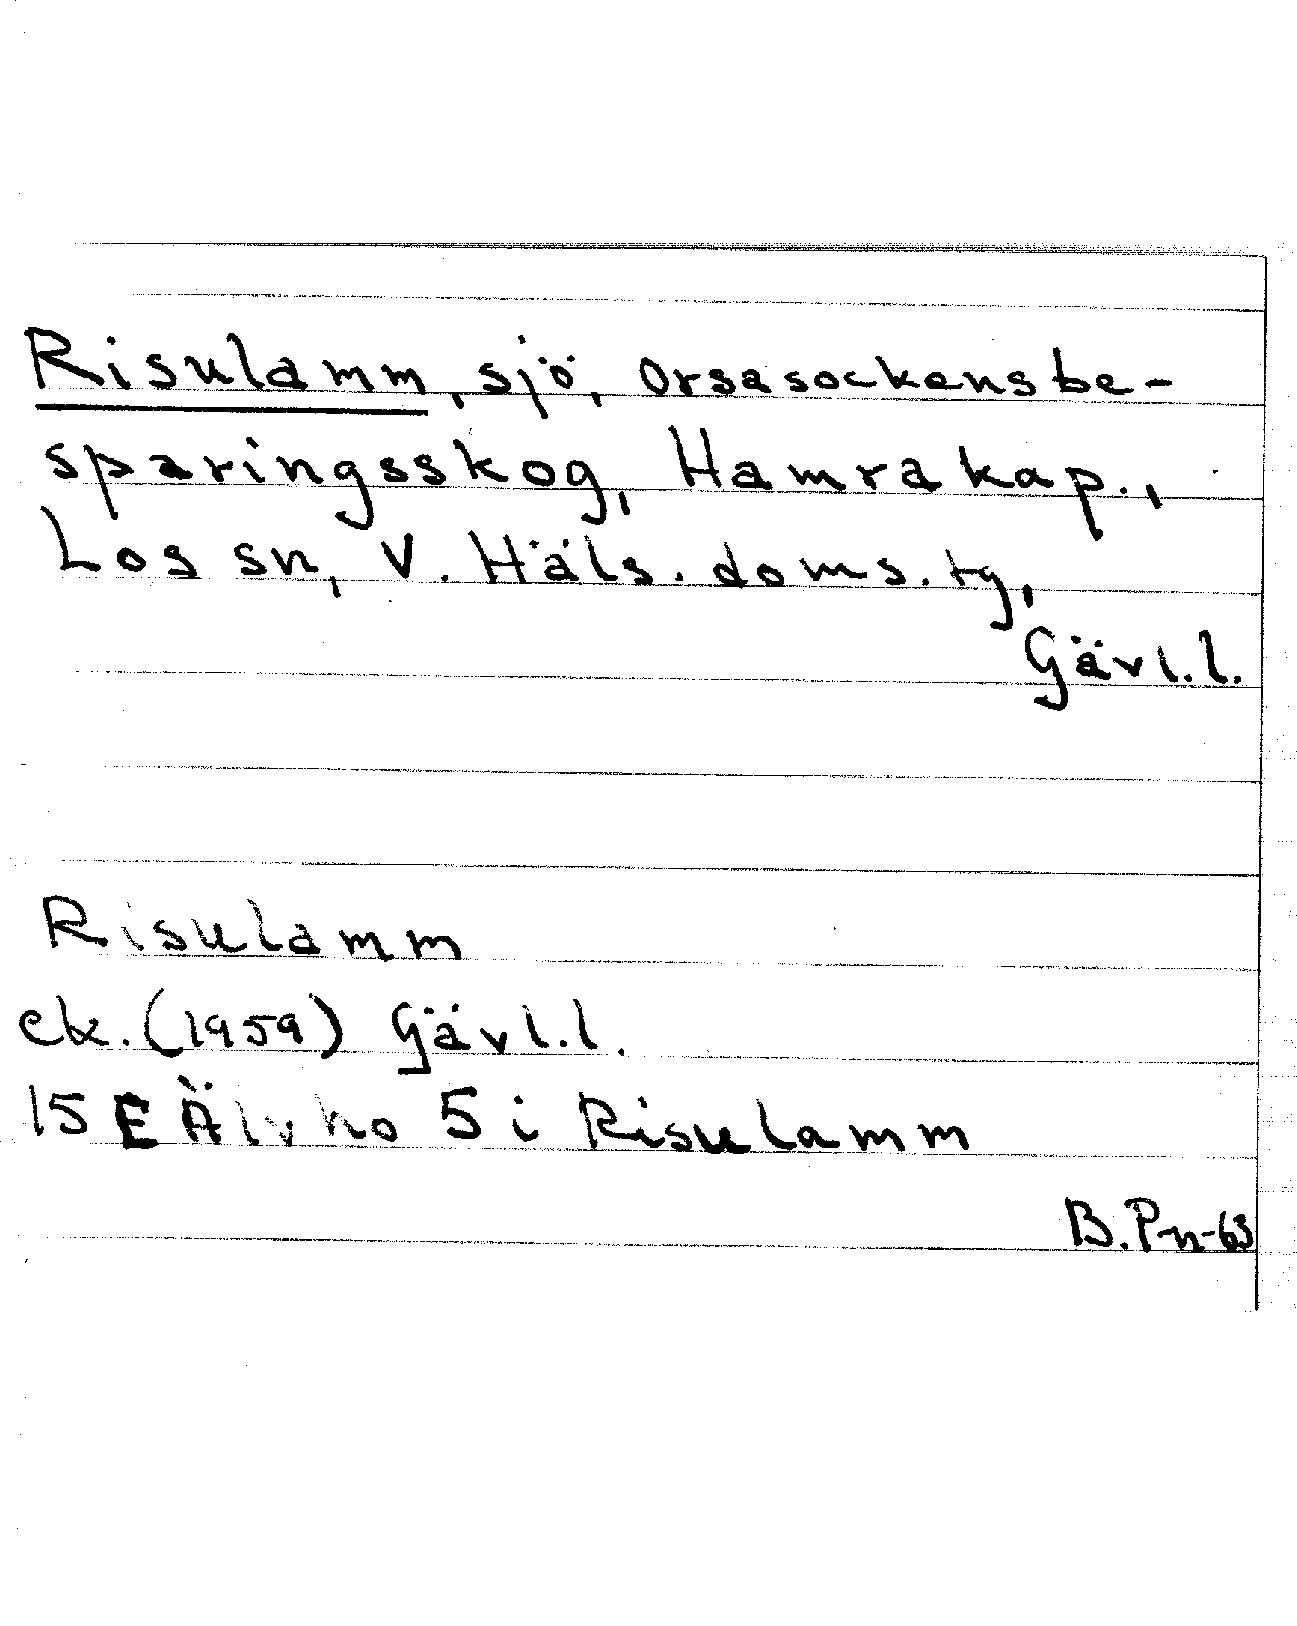 Risulamm, sjö, Orsa sockens be-
sparingsskog, Hamra kap.,
Los sn, V. Häls. doms. tg,
Gävl. l.
Risulamm
ek. (1959) Gävl. l.
15 E Älvho 5 i Risulamm
B. Pn-63